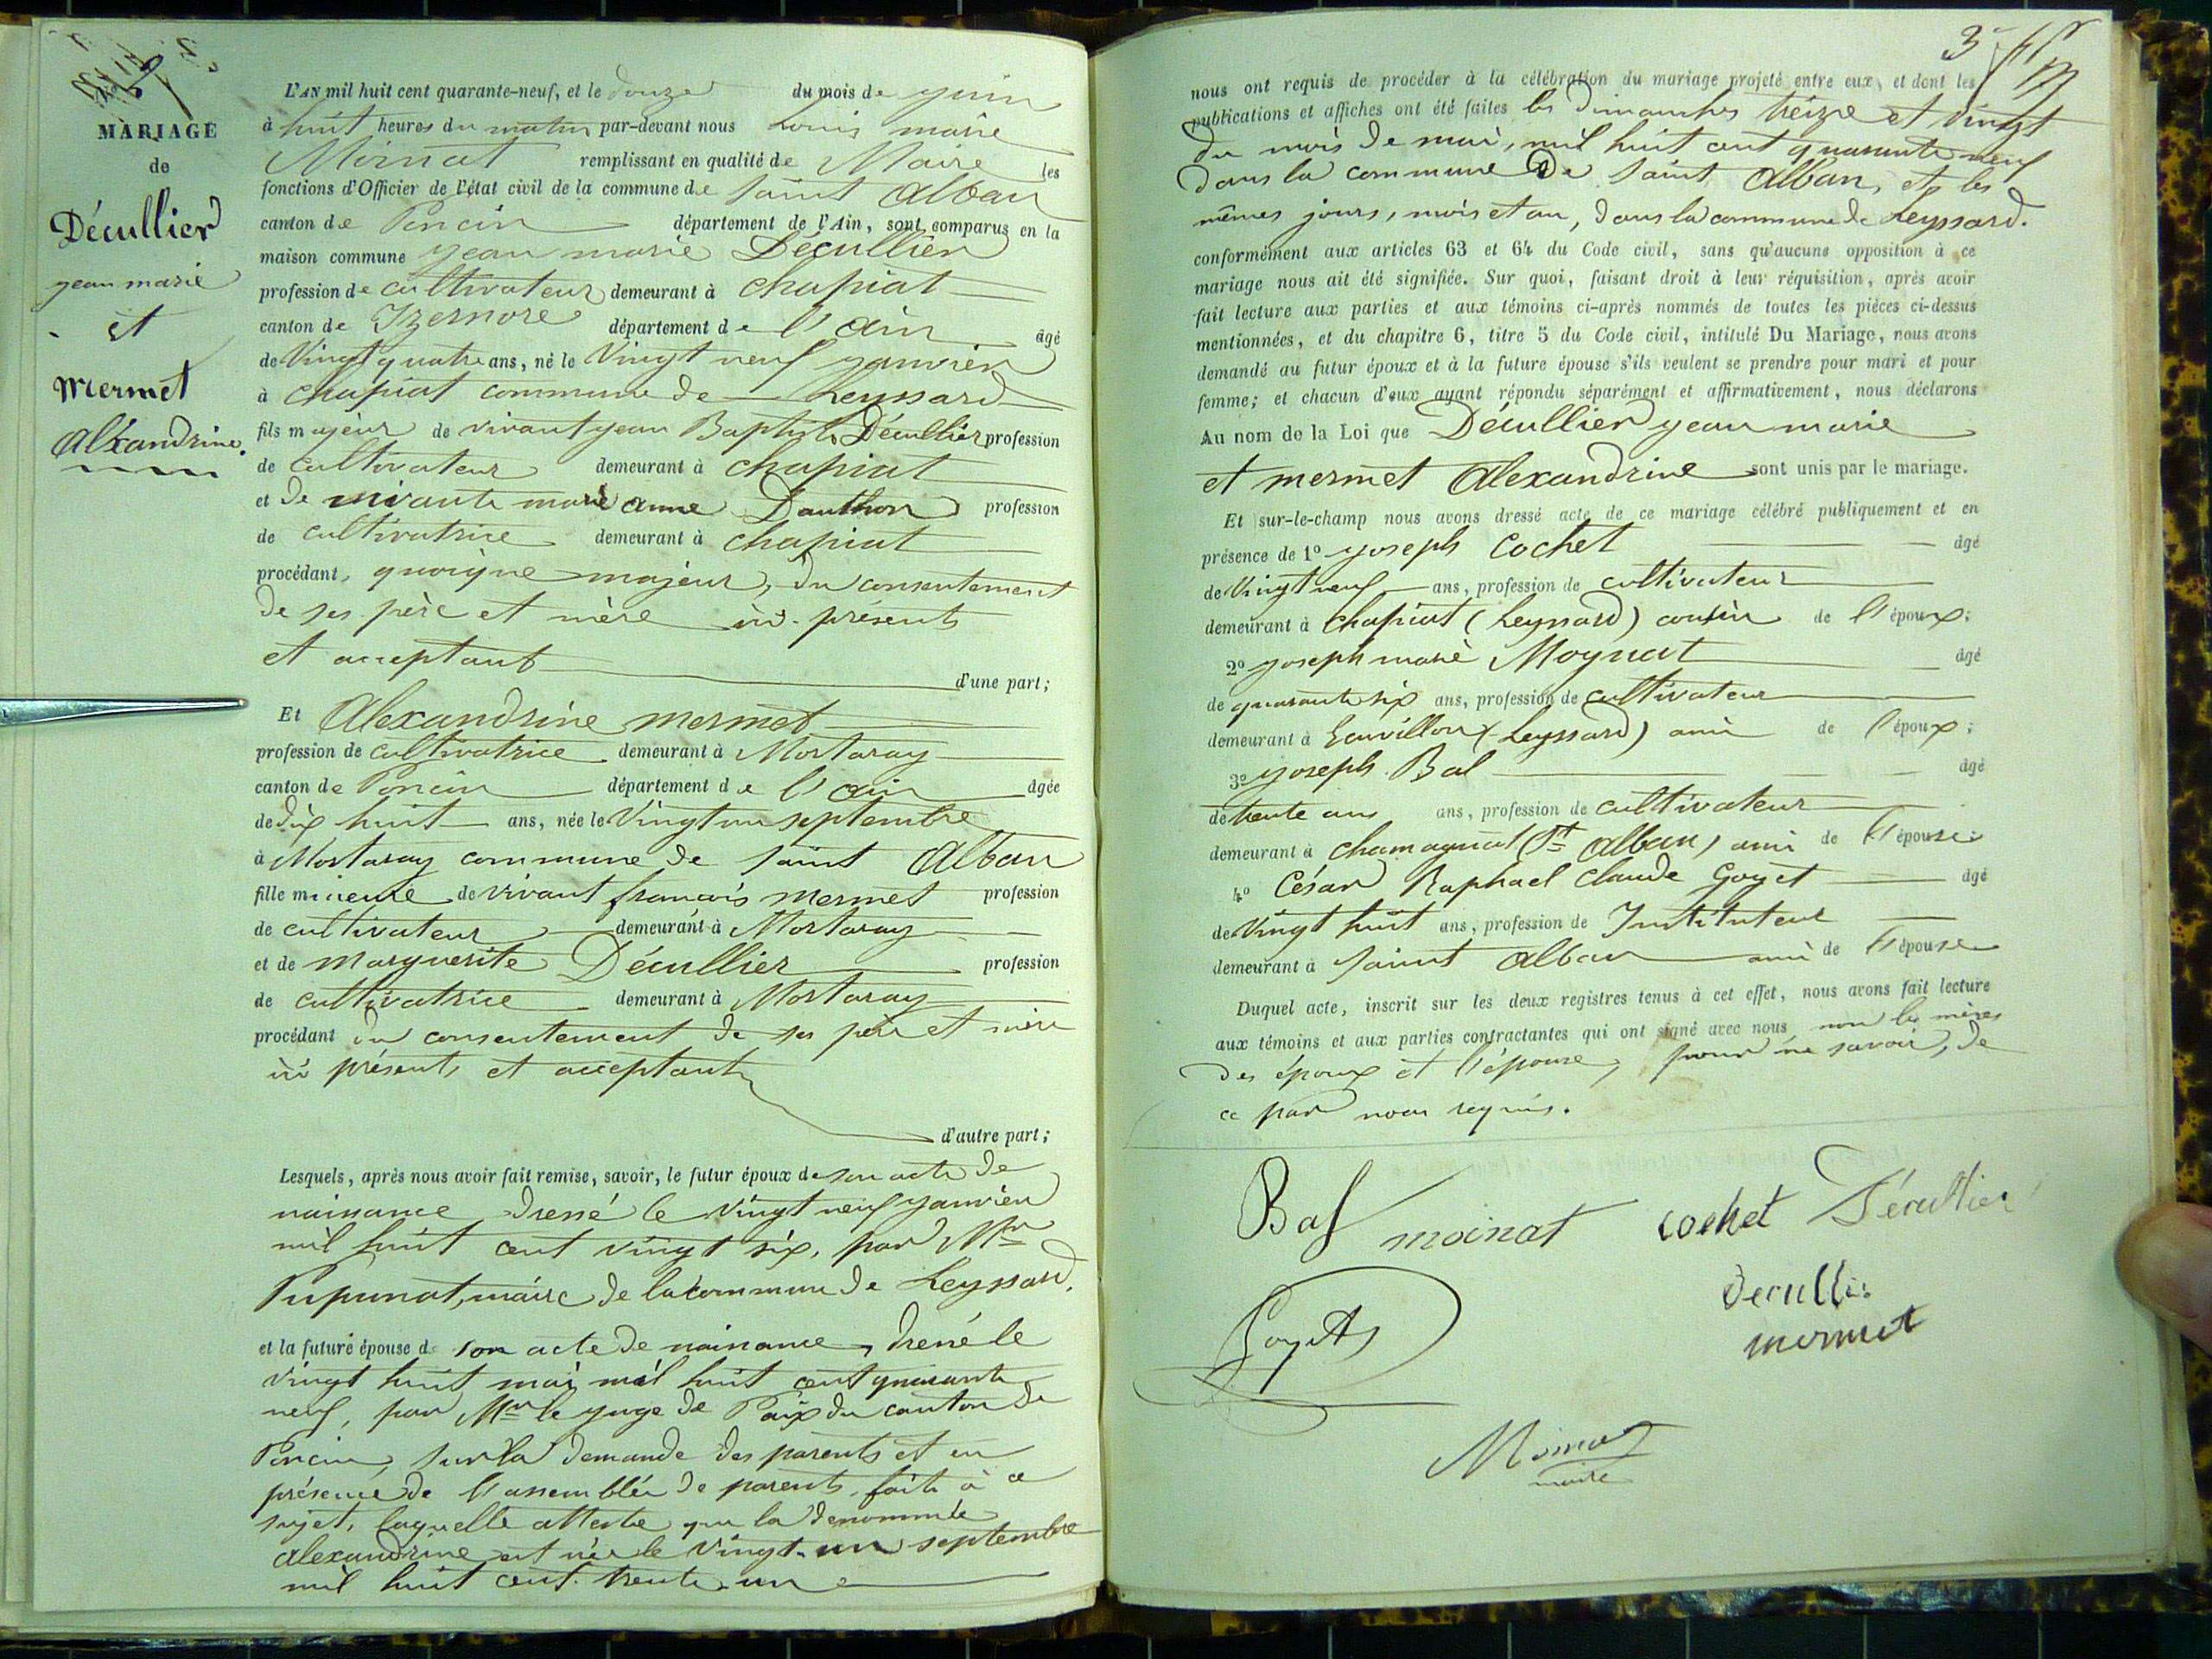 2
MARIAGE
de
Décullier
jean marie
et
mermet
Aléxandrine.
L'AN mil huit cent quarante-neuf, et le douze du mois de juin
à huit heures du matin par-devant nous Louis marie
Moinat remplissant en qualité de Maire les
fonctions d'Officier de l'état civil de la commune de saint Alban
canton de Poncin département de l'Ain, sont comparus en la
maison commune jean marie Décullier
profession de cultivateur demeurant à chapiat
canton de Izernore département de l'ain âgé
de Vingt quatre ans, né le Vingt neuf janvier
à chapiat commune de Leyssard
fils majeur de vivant jean Baptiste Décullier profession
de cultivateur demeurant à chapiat
et de vivante marie anne Dauthon profession
de cultivatrice demeurant à chapiat
procédant, quoique majeur, du consentement
de ses père et mère ici présents
et acceptant
d'une part;
Et Alexandrine mermet
profession de cultivatrice demeurant à Mortaray
canton de Poncin département de l'ain âgée
de dix huit ans, née le Vingt un septembre
à Mortaray commune de saint Alban
fille mineure de vivant françois mermet profession
de cultivateur demeurant à Mortaray
et de marguerite Décullier profession
de cultivatrice demeurant à Mortaray
procédant du consentement de ses père et mère
ici présents et acceptant
d'autre part;
Lesquels, après nous avoir fait remise, savoir, le futur époux de son acte de
naissance dressé le vingt neuf janvier
mil huit cent vingt six, par Mr
Pupunat, maire de la commune de Leyssard.
et la future épouse de son acte de naissance, dressé le
vingt huit mai mil huit cent quarante
neuf, par Mr le juge de Paix du canton de
Poncin, sur la demande des parents et en
présence de l'assemblée de parents faite à ce
sujet, laquelle atteste que la dénommée
alexandrine est née le vingt-un septembre
mil huit cent trente-un
3
nous ont requis de procéder à la célébration du mariage projeté entre eux, et dont les
publications et affiches ont été faites les dimanches treize et vingt
du mois de mai, mil huit cent quarante neuf
dans la commune de saint Alban, et les
mêmes jours, mois et an, dans la commune de Leyssard.
conformément aux articles 63 et 64 du Code civil, sans qu'aucune opposition à ce
mariage nous ait été signifiée. Sur quoi, faisant droit à leur réquisition, après avoir
fait lecture aux parties et aux témoins ci-après nommés de toutes les pièces ci-dessus
mentionnées, et du chapitre 6, titre 5 du Code civil, intitulé Du Mariage, nous avons
demandé au futur époux et à la future épouse s'ils veulent se prendre pour mari et pour
femme; et chacun d'eux ayant répondu séparément et affirmativement, nous déclarons
Au nom de la Loi que Décullier jean marie
et mermet Alexandrine sont unis par le mariage.
Et sur-le-champ nous avons dressé acte de ce mariage célébré publiquement et en
présence de 1º joseph Cochet âgé
de Vingt neuf ans, profession de cultivateur
demeurant à chapiat (Leyssard) cousin de l'époux;
2º joseph marie Moynat âgé
de quarante six ans, profession de cultivateur
demeurant à (Leyssard) ami de l'époux;
3º joseph Bal âgé
de trente ans ans, profession de cultivateur
demeurant à chamagnat (St Alban) ami de l'épouse
4º César Raphael Claude Goyet âgé
de Vingt huit ans, profession de Instituteur
demeurant à saint Alban ami de l'épouse
Duquel acte, inscrit sur les deux registres tenus à cet effet, nous avons fait lecture
aux témoins et aux parties contractantes qui ont signé avec nous non les mères
des époux et l'épouse, pour ne savoir, de
ce par nous requis.
Bal moinat cochet Décullier
Goyet
Decullier
mermet
Moinat
maire